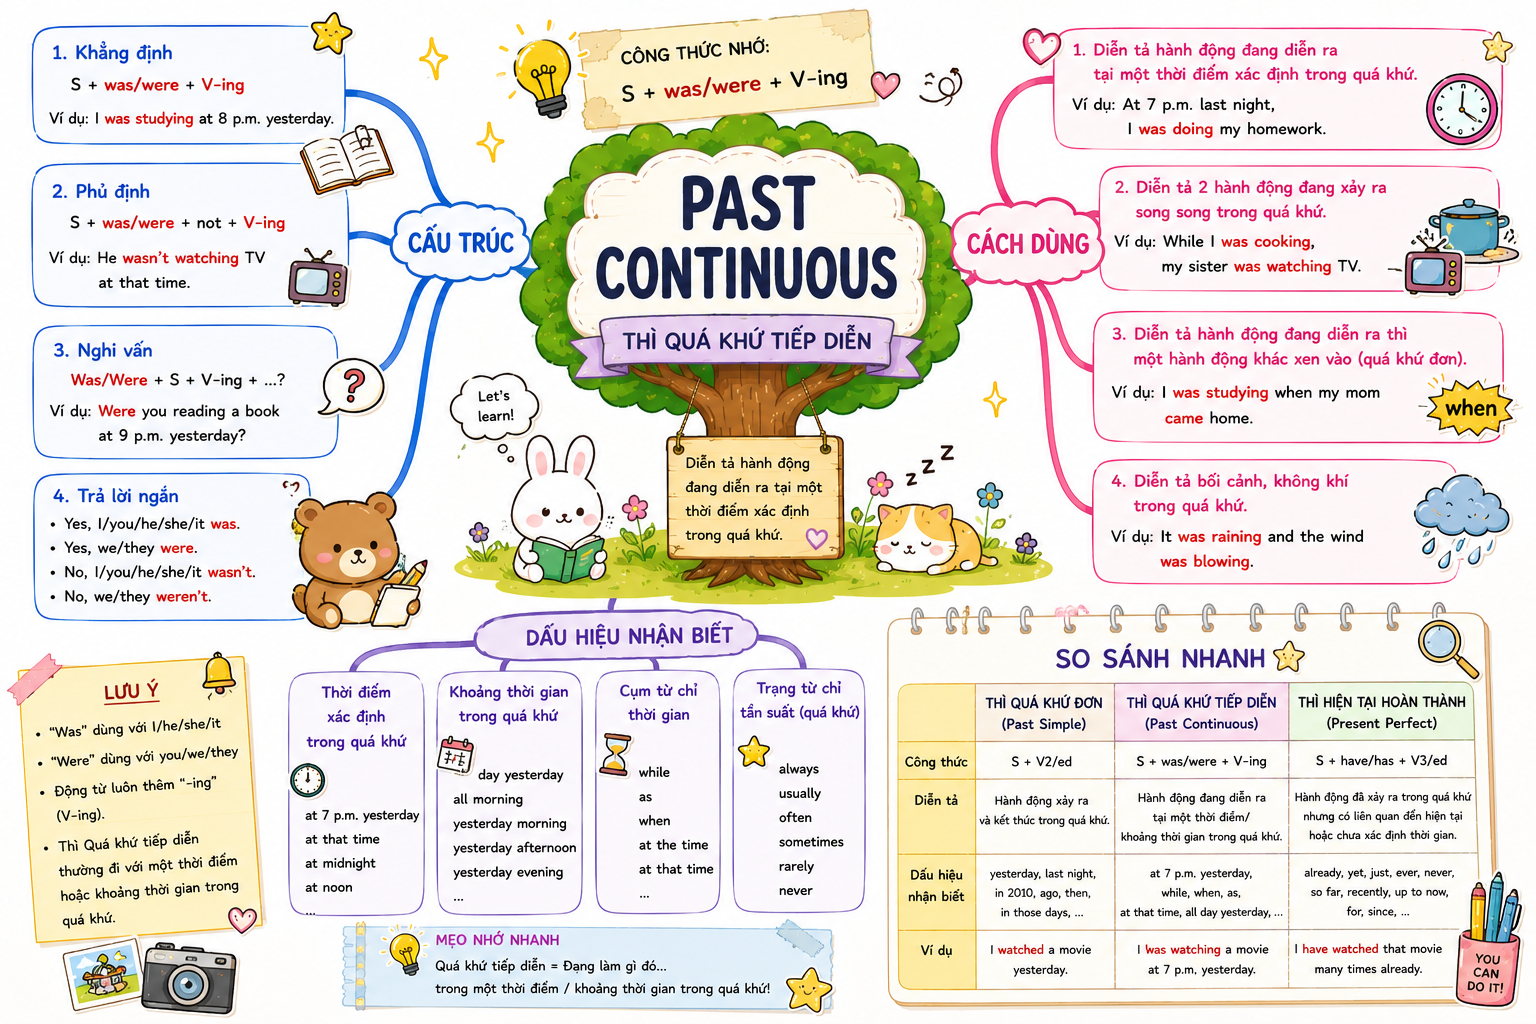 CÔNG THỨC NHỚ:
S + was/were + V-ing
PAST
CONTINUOUS
THÌ QUÁ KHỨ TIẾP DIỄN
Diễn tả hành động
đang diễn ra tại một
thời điểm xác định
trong quá khứ.
Let's
learn!
z z z
CẤU TRÚC
1. Khẳng định
S + was/were + V-ing
Ví dụ: I was studying at 8 p.m. yesterday.
2. Phủ định
S + was/were + not + V-ing
Ví dụ: He wasn't watching TV
at that time.
3. Nghi vấn
Was/Were + S + V-ing + ...?
Ví dụ: Were you reading a book
at 9 p.m. yesterday?
?
4. Trả lời ngắn
• Yes, I/you/he/she/it was.
• Yes, we/they were.
• No, I/you/he/she/it wasn't.
• No, we/they weren't.
CÁCH DÙNG
1. Diễn tả hành động đang diễn ra
tại một thời điểm xác định trong quá khứ.
Ví dụ: At 7 p.m. last night,
I was doing my homework.
2. Diễn tả 2 hành động đang xảy ra
song song trong quá khứ.
Ví dụ: While I was cooking,
my sister was watching TV.
3. Diễn tả hành động đang diễn ra thì
một hành động khác xen vào (quá khứ đơn).
Ví dụ: I was studying when my mom
came home.
when
4. Diễn tả bối cảnh, không khí
trong quá khứ.
Ví dụ: It was raining and the wind
was blowing.
DẤU HIỆU NHẬN BIẾT
Thời điểm
xác định
trong quá khứ
at 7 p.m. yesterday
at that time
at midnight
at noon
...
Khoảng thời gian
trong quá khứ
day yesterday
all morning
yesterday morning
yesterday afternoon
yesterday evening
...
Cụm từ chỉ
thời gian
while
as
when
at the time
at that time
...
Trạng từ chỉ
tần suất (quá khứ)
always
usually
often
sometimes
rarely
never
LƯU Ý
• "Was" dùng với I/he/she/it
• "Were" dùng với you/we/they
• Động từ luôn thêm "-ing"
(V-ing).
• Thì Quá khứ tiếp diễn
thường đi với một thời điểm
hoặc khoảng thời gian trong
quá khứ.
MẸO NHỚ NHANH
Quá khứ tiếp diễn = Đạng làm gì đó...
trong một thời điểm / khoảng thời gian trong quá khứ!
SO SÁNH NHANH
THÌ QUÁ KHỨ ĐƠN
(Past Simple)
THÌ QUÁ KHỨ TIẾP DIỄN
(Past Continuous)
THÌ HIỆN TẠI HOÀN THÀNH
(Present Perfect)
Công thức
S + V2/ed
S + was/were + V-ing
S + have/has + V3/ed
Diễn tả
Hành động xảy ra
và kết thúc trong quá khứ.
Hành động đang diễn ra
tại một thời điểm/
khoảng thời gian trong quá khứ.
Hành động đã xảy ra trong quá khứ
nhưng có liên quan đến hiện tại
hoặc chưa xác định thời gian.
Dấu hiệu
nhận biết
yesterday, last night,
in 2010, ago, then,
in those days, ...
at 7 p.m. yesterday,
while, when, as,
at that time, all day yesterday, ...
already, yet, just, ever, never,
so far, recently, up to now,
for, since, ...
Ví dụ
I watched a movie
yesterday.
I was watching a movie
at 7 p.m. yesterday.
I have watched that movie
many times already.
YOU
CAN
DO IT!